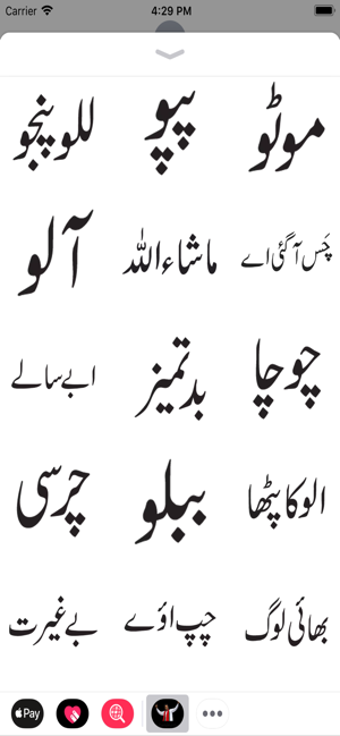 Carrier 4:29 PM
موٹو پپو للو پنجو
چَس آ گئی اے ماشاءاللہ آلو
چوچا بدتمیز ابے سالے
الو کا پٹھا ببلو چرسی
بھائی لوگ چپ اؤے بے غیرت
Pay